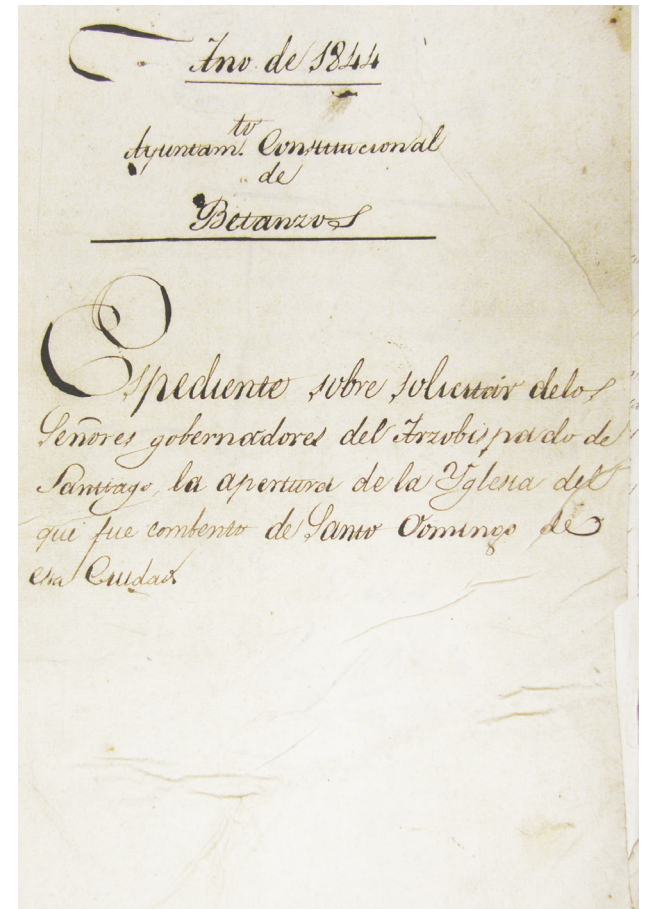 Año de 1844
Ayuntam.to Constitucional
de
Betanzos
Espediente sobre solicitar delos
Señores gobernadores del Arzobispado de
Santiago, la apertura de la Yglesia del
que fue combento de Santo Domingo de
esta Ciudad.